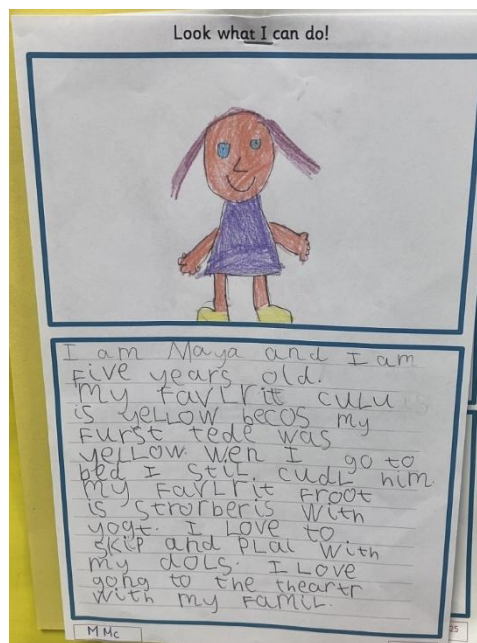 Look what I can do!
I am Maya and I am
five years old.
my favLrit culu
is yeLLow becos my
furst tede was
yeLLow. wen I go to
bed I stiL cudL him.
my favLrit froot
is strorberis with
yogt. I Love to
skip and pLai with
my doLs. I Love
gong to the theartr
with my famiL.
M Mc
25